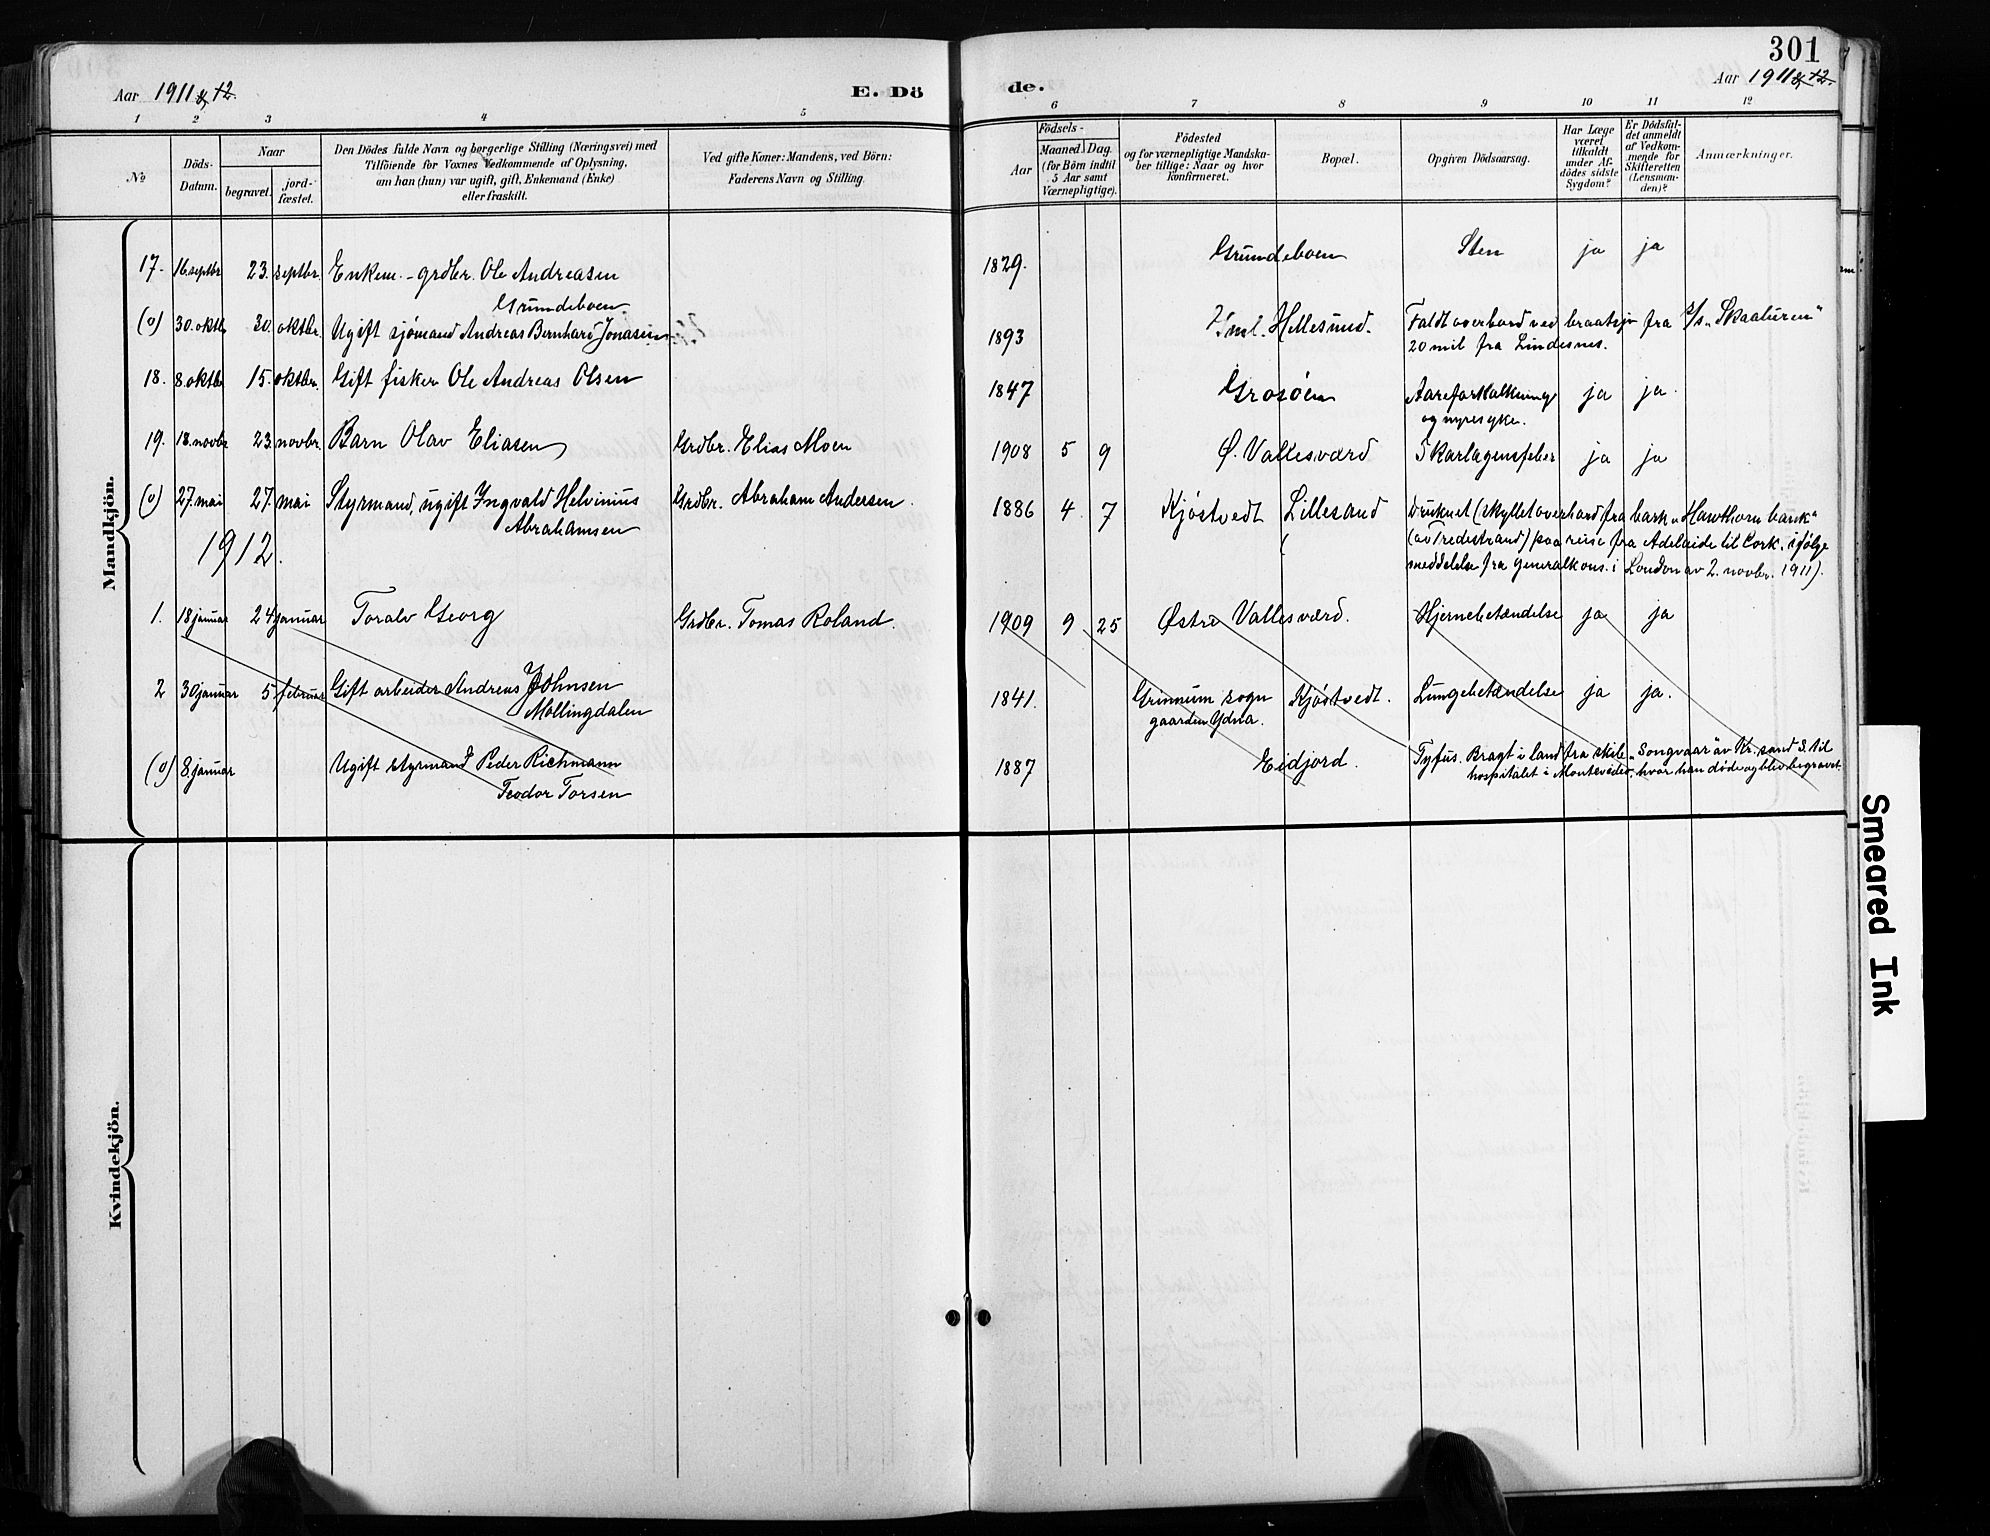 301
Aar 1911 & 12.
E. Dö
de.
Aar 1911 & 12.
1 2 3 4 5 6 7 8 9 10 11 12
No
Döds-
Datum.
Naar
begravet.
jord-
fæstet.
Den Dödes fulde Navn og borgerlige Stilling (Næringsvei) med
Tilföiende for Voxnes Vedkommende af Oplysning,
om han (hun) var ugift, gift, Enkemand (Enke)
eller fraskilt.
Ved gifte Koner: Mandens, ved Börn:
Faderens Navn og Stilling.
Födsels-
Aar
Maaned. Dag.
(for Börn indtil
5 Aar samt
Værnepligtige).
Födested
og for værnepligtige Mandska-
ber tillige: Naar og hvor
konfirmeret.
Bopæl.
Opgiven Dödsaarsag.
Har Læge
været
tilkaldt
under Af-
dödes sidste
Sygdom?
Er Dödsfal-
det anmeldt
af Vedkom-
mende for
Skifteretten
(Lensman-
den)?
Anmærkninger.
Mandkjön.
17. 16. septbr 23. septbr. Enkem. - grdbr. Ole Andreasen 1829. Grundeboen Sten ja ja
Grundeboen.
(0) 30. oktb 30. oktbr. Ugift sjömand Andreas Bernhard Jonasen 1893 Hellesund. Faldt overbord ved fra s/s „Skaaturen"
20 mil fra Lindesnes.
18. 8. oktbr 15. oktbr. Gift fisker Ole Andreas Olsen 1847 Grosöen Aareforkalkning ja ja.
og nyresyke.
19. 18. novbr 23. novbr. Barn Olav Eliasen Grdbr. Elias Moen 1908 5 9 Ø. Vallesværd Skarlagensfeber ja ja
(0) 27. mai 27. mai Styrmand, ugift Yngvald Helvinius Grdbr. Abraham Andersen. 1886 4 7 Kjöstvedt Lillesand Druknet (skyllet overbord fra bark „Hawthorn bank"
Abrahamsen (av Tvedestrand) paa reise fra Adelaide til Cork, ifölge
meddelelse fra generalkons. i London av 2. novbr. 1911).
1912.
1. 18 januar 24 januar Toralv Georg Grdbr. Tomas Roland. 1909 9 25 Østre Vallesværd. Hjernebetændelse ja ja
2 30 januar 5 februar Gift arbeider Andreas Johnsen 1841. Grinnum sogn Kjöstvedt. Lungebetændelse ja ja.
Möllingdalen gaarden Ydna.
(0) 8. januar Ugift styrmand Peder Richmann 1887 Eidjord. Tyfus. Bragt i land fra skib „Songvaar" av Kr.sand S. til
Teodor Torsen hospitalet i Montevideo, hvor han döde og blev begravet.
Kvindekjön.
Smeared Ink